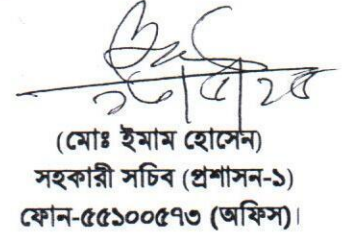 (মোঃ ইমাম হোসেন)
সহকারী সচিব (প্রশাসন-১)
ফোন-৫৫১০০৫৭৩ (অফিস)।